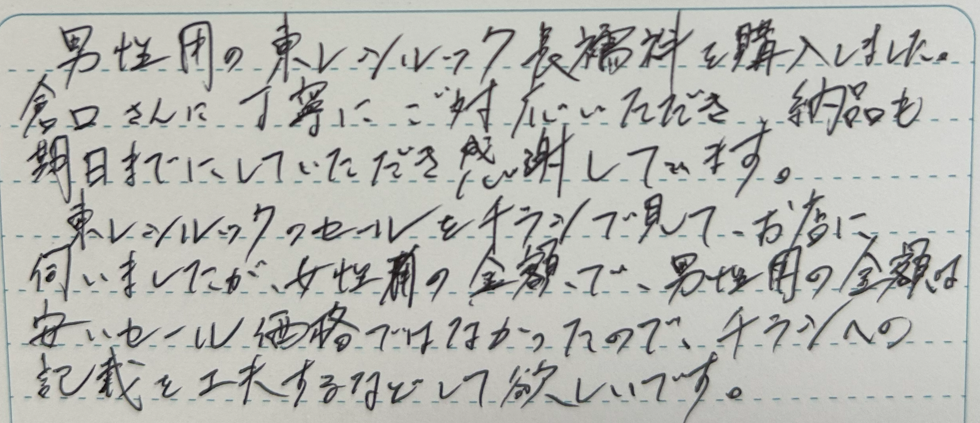 男性用の東レシルック長襦袢を購入しました。
倉口さんに丁寧にご対応いただき、納品も
期日までにしていただき感謝しています。
東レシルックのセールをチラシで見て、お店に
伺いましたが、女性用の金額で、男性用の金額は
安いセール価格ではなかったので、チラシへの
記載を工夫するなどして欲しいです。